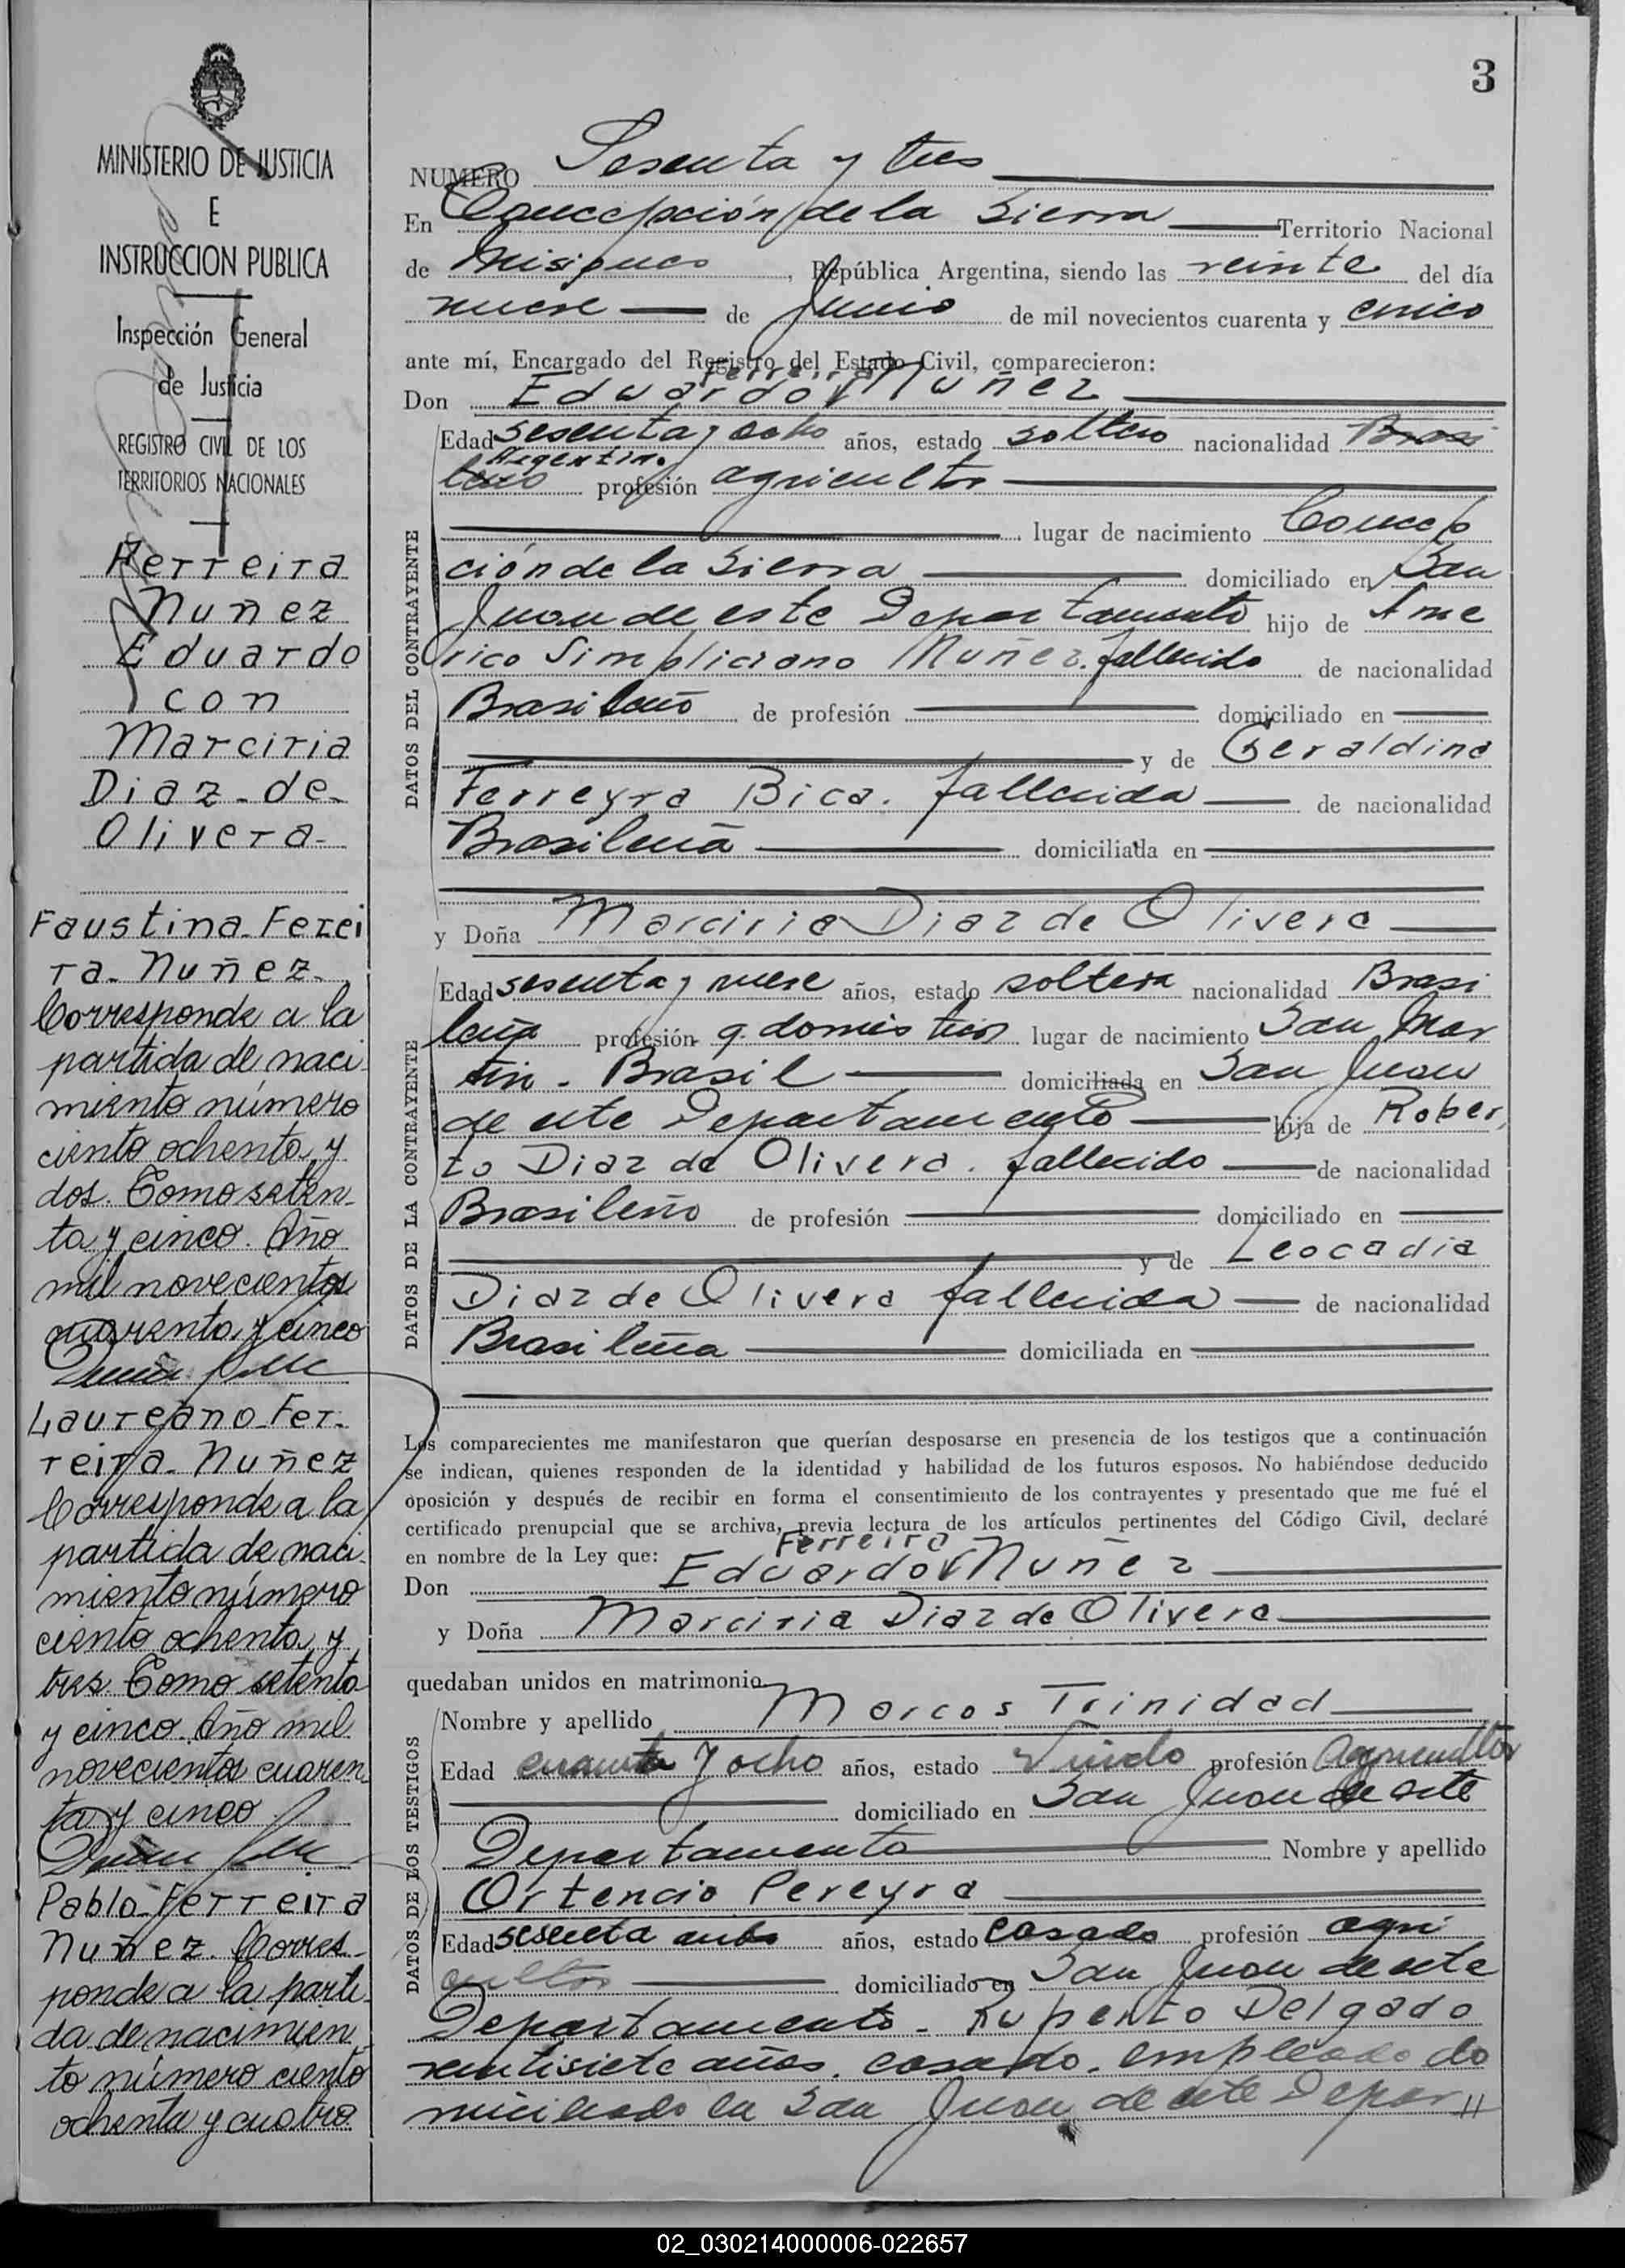 3
MINISTERIO DE JUSTICIA
E
INSTRUCCION PUBLICA
Inspección General
de Justicia
REGISTRO CIVIL DE LOS
TERRITORIOS NACIONALES
Ferreira
Nuñez
Eduardo
con
Marciria
Diaz de
Olivera
Faustina Ferei
ra Nuñez
Corresponde a la
partida de naci
miento número
ciento ochenta y
dos. Tomo seten
ta y cinco. Año
mil novecientos
cuarenta y cinco
Laureano Fer
reira Nuñez
Corresponde a la
partida de naci
miento número
ciento ochenta y
tres. Tomo setenta
y cinco. Año mil
novecientos cuaren
ta y cinco
Pablo Ferreira
Nuñez. Corres
ponde a la parti
da de nacimien
to número ciento
ochenta y cuatro
NUMERO Sesenta y tres
En Concepción de la Sierra Territorio Nacional
de Misiones, República Argentina, siendo las veinte del día
nueve de Junio de mil novecientos cuarenta y cinco
ante mí, Encargado del Registro del Estado Civil, comparecieron:
Ferreira
Don Eduardo Nuñez
DATOS DEL CONTRAYENTE
Edad sesenta y ocho años, estado soltero nacionalidad Brasi
Argentin.
leño profesión agricultor
lugar de nacimiento Concep
ción de la Sierra domiciliado en San
Juan de este Departamento hijo de Ame
rico Simpliciano Nuñez. fallecido de nacionalidad
Brasileño de profesión domiciliado en
y de Geraldina
Ferreyra Bica. fallecida de nacionalidad
Brasileña domiciliada en
y Doña Marciria Diaz de Olivera
DATOS DE LA CONTRAYENTE
Edad sesenta y nueve años, estado soltera nacionalidad Brasi
leña profesión q. domesticos lugar de nacimiento San Mar
tin. Brasil domiciliada en San Juan
de este Departamento hija de Rober
to Diaz de Olivera. fallecido de nacionalidad
Brasileño de profesión domiciliado en
y de Leocadia
Diaz de Olivera fallecida de nacionalidad
Brasileña domiciliada en
Los comparecientes me manifestaron que querían desposarse en presencia de los testigos que a continuación
se indican, quienes responden de la identidad y habilidad de los futuros esposos. No habiéndose deducido
oposición y después de recibir en forma el consentimiento de los contrayentes y presentado que me fué el
certificado prenupcial que se archiva, previa lectura de los artículos pertinentes del Código Civil, declaré
en nombre de la Ley que:
Ferreira
Don Eduardo Nuñez
y Doña Marciria Diaz de Olivera
quedaban unidos en matrimonio.
DATOS DE LOS TESTIGOS
Nombre y apellido Marcos Trinidad
Edad cuarenta y ocho años, estado Viudo profesión Agricultor
domiciliado en San Juan de este
Departamento Nombre y apellido
Ortencio Pereyra
Edad sesenta años, estado casado profesión agri
cultor domiciliado en San Juan de este
Departamento. Ruperto Delgado
veintisiete años. casado. empleado do
miciliado en San Juan de este Depar //
02_030214000006-022657